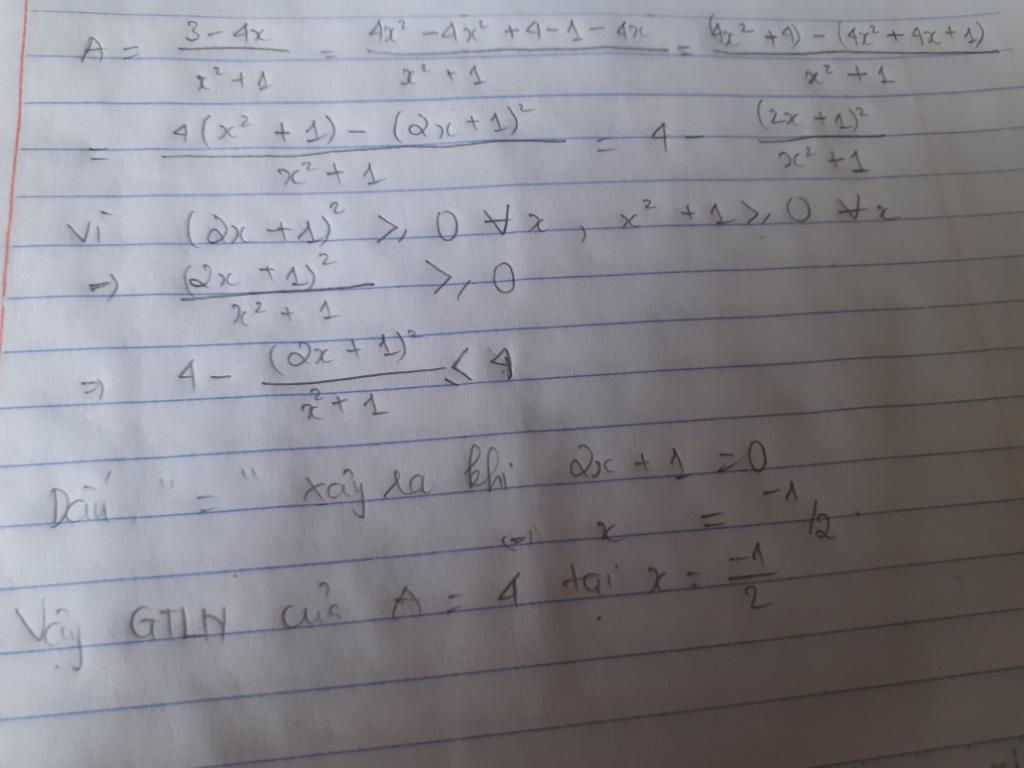 A = \frac{3-4x}{x²+1} = \frac{4x²-4x²+4-1-4x}{x²+1} = \frac{(4x²+4)-(4x²+4x+1)}{x²+1}
= \frac{4(x²+1)-(2x+1)²}{x²+1} = 4 - \frac{(2x+1)²}{x²+1}
Vì (2x+1)² ≥ 0 ∀x, x²+1 ≥ 0 ∀x
→ \frac{(2x+1)²}{x²+1} ≥ 0
⇒ 4 - \frac{(2x+1)²}{x²+1} ≤ 4
Dấu "=" xảy ra khi 2x+1 =0
⇔ x = -1/2
Vậy GTLN của A = 4 tại x = \frac{-1}{2}